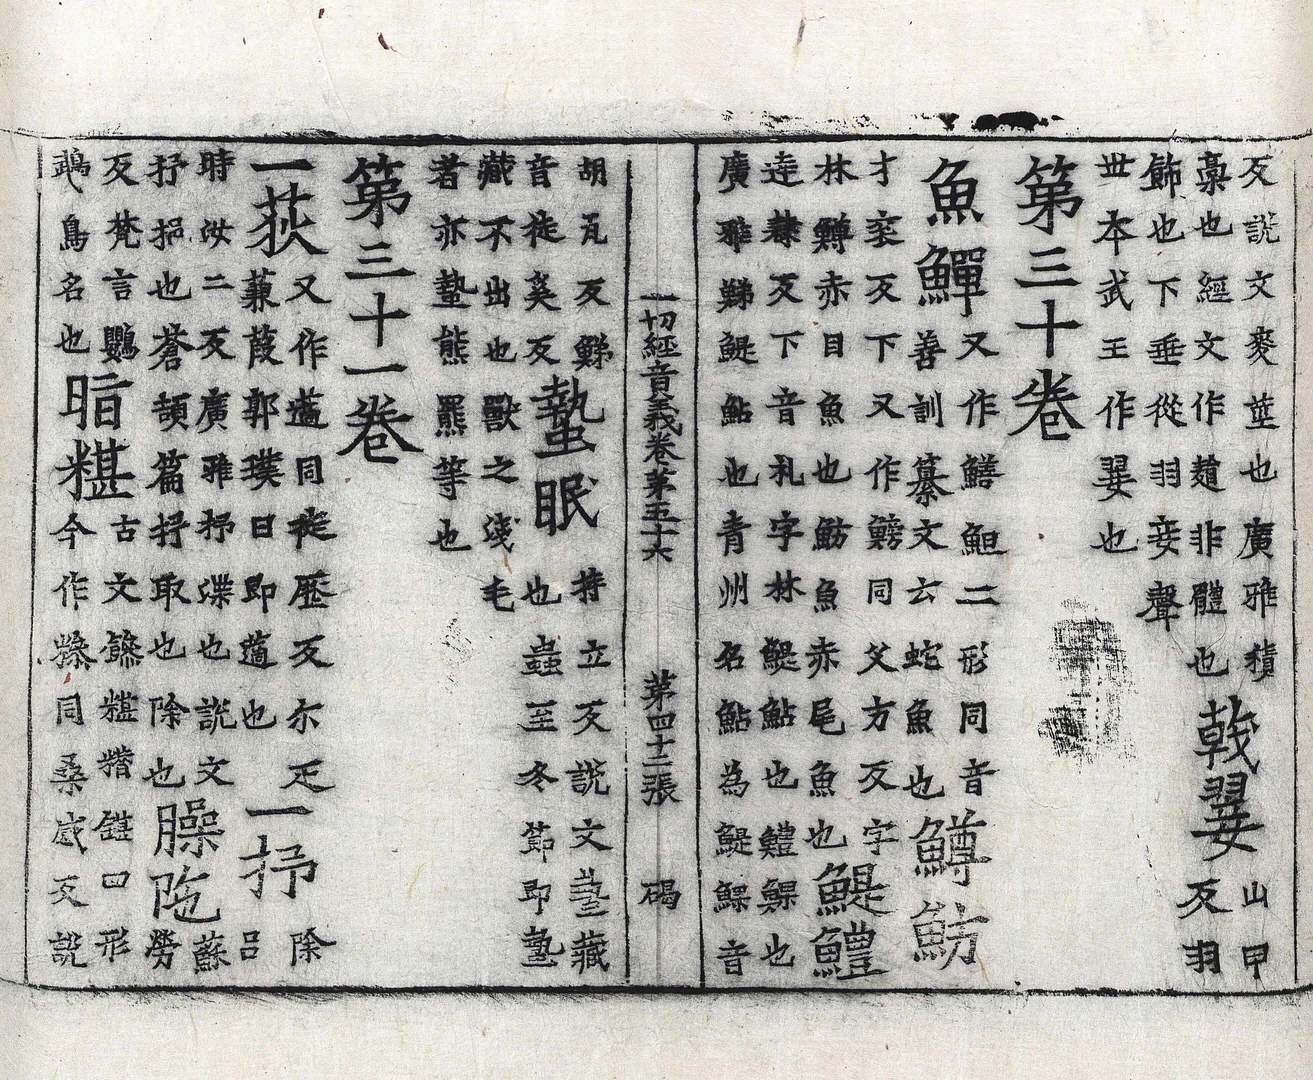 反説文麥莖也廣雅積
藁也經文作䅌非體也
戟翣
山甲
反羽
飾也下垂從羽妾聲
世本武王作翣也
第三十卷
魚鱓
又作鱔䱇二形同音
善訓纂文云蛇魚也
鱒魴
才衮反下又作鰟同父方反字
林鱒赤目魚也魴魚赤尾魚也
鯷鱧
逹隸反下音礼字林鯷鮎也鱧鯶也
廣雅鮷鯷鮎也青州名鮎為鯷鯶音
一切經音義卷第五十六 第四十二張 碣
胡瓦反鮷
音徒奚反
蟄眠
持立反説文蟄藏
也蟲至冬節即蟄
藏不出也獸之淺毛
者亦蟄熊羆等也
第三十一卷
一荻
又作藡同徒歷反尔疋
蒹葭郭璞曰即藡也
一抒
除
呂
時汝二反廣雅抒渫也説文
抒挹也蒼頡篇抒取也除也
臊陁
蘇
勞
反梵言鸚
鵡鳥名也
暗糂
古文糣四形
今作糁同桑感反説